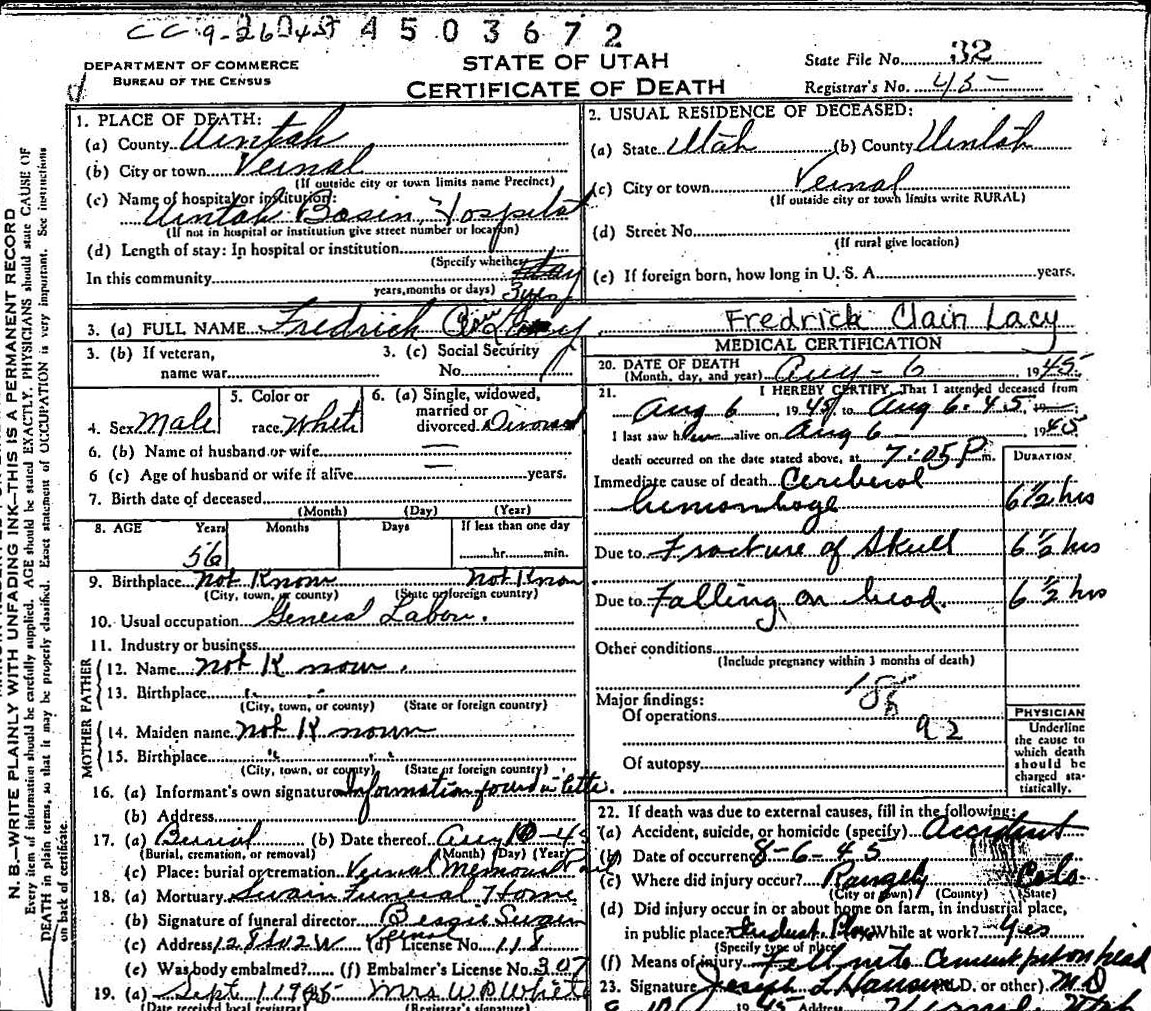 CC 9-26-45 4503672
DEPARTMENT OF COMMERCE
BUREAU OF THE CENSUS
STATE OF UTAH
CERTIFICATE OF DEATH
State File No. 32
Registrar's No. 45-
N. B.—WRITE PLAINLY WITH UNFADING INK—THIS IS A PERMANENT RECORD
Every item of information should be carefully supplied. AGE should be stated EXACTLY. PHYSICIANS should state CAUSE OF
DEATH in plain terms, so that it may be properly classified. Exact statement of OCCUPATION is very important. See instructions
on back of certificate.
1. PLACE OF DEATH:
(a) County Uintah
(b) City or town Vernal
(If outside city or town limits name Precinct)
(c) Name of hospital or institution:
Uintah Basin Hospital
(If not in hospital or institution give street number or location)
(d) Length of stay: In hospital or institution
(Specify whether day
In this community
years, months or days) 3 yrs
2. USUAL RESIDENCE OF DECEASED:
(a) State Utah (b) County Uintah
(c) City or town Vernal
(If outside city or town limits write RURAL)
(d) Street No.
(If rural give location)
(e) If foreign born, how long in U. S. A. years.
3. (a) FULL NAME Fredrick Clain Lacy Fredrick Clain Lacy
3. (b) If veteran,
name war
3. (c) Social Security
No.
4. Sex Male
5. Color or
race White
6. (a) Single, widowed,
married or
divorced Divorced
6. (b) Name of husband or wife —
6 (c) Age of husband or wife if alive — years.
7. Birth date of deceased
(Month) (Day) (Year)
8. AGE Years Months Days If less than one day
56 hr. min.
9. Birthplace Not Know Not Know
(City, town, or county) (State or foreign country)
10. Usual occupation General Labor.
11. Industry or business
FATHER
12. Name Not Know.
13. Birthplace " "
(City, town, or county) (State or foreign country)
MOTHER
14. Maiden name Not Know
15. Birthplace " "
(City, town, or county) (State or foreign country)
16. (a) Informant's own signature Information found in letter.
(b) Address
17. (a) Burial (b) Date thereof Aug 10-45
(Burial, cremation, or removal) (Month) (Day) (Year)
(c) Place: burial or cremation Vernal Memorial Park
18. (a) Mortuary Swain Funeral Home
(b) Signature of funeral director Bessie Swain
(c) Address Vernal (d) License No. 118
(e) Was body embalmed? (f) Embalmer's License No. 307
19. (a) Sept 1 1945 Mrs W D White
(Date received local registrar) (Registrar's signature)
MEDICAL CERTIFICATION
20. DATE OF DEATH
(Month, day, and year) Aug - 6 1945.
21. I HEREBY CERTIFY, That I attended deceased from
Aug 6, 1945, to Aug 6. 45 19
I last saw him alive on Aug 6 1945
death occurred on the date stated above, at 7:05 P m.
DURATION
Immediate cause of death Cerebral
hemorrhage 6 1/2 hrs
Due to Fracture of Skull 6 1/2 hrs
Due to Falling on head. 6 1/2 hrs
Other conditions
(Include pregnancy within 3 months of death)
Major findings:
Of operations
92
Of autopsy
PHYSICIAN
Underline
the cause to
which death
should be
charged sta-
tistically.
22. If death was due to external causes, fill in the following:
(a) Accident, suicide, or homicide (specify) Accident
(b) Date of occurrence 8-6-45
(c) Where did injury occur? Rangely Colo.
(City or town) (County) (State)
(d) Did injury occur in or about home on farm, in industrial place,
in public place? Indust. Place While at work? Yes
(Specify type of place)
(f) Means of injury Fell into cement pit on head
23. Signature Joseph L Hansen (M.D. or other) M D
1945 Address Vernal, Utah